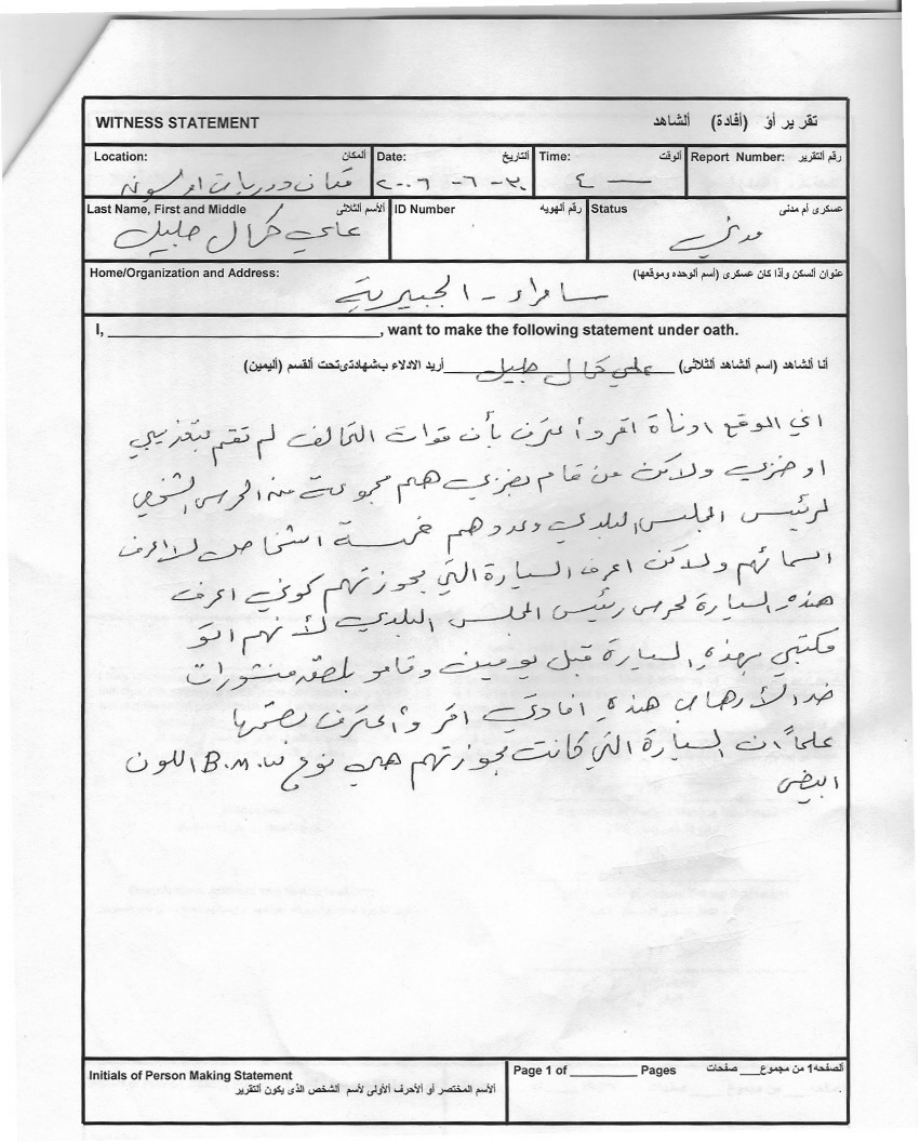 WITNESS STATEMENT تقرير أو (أفادة) ألشاهد
Location: ألمكان Date: ألتاريخ Time: ألوقت Report Number: رقم ألتقرير
٣٠-٦-٢٠٠٦ ٤
Last Name, First and Middle ألأسم ألثلاثي ID Number رقم ألهويه Status عسكرى أم مدنى
علي كمال خليل مدني
Home/Organization and Address: عنوان ألسكن وأذا كان عسكرى (أسم ألوحده وموقعها)
سامراء - الجبيرية
I, ____________________, want to make the following statement under oath.
أنا ألشاهد (اسم ألشاهد ألثلاثى) علي كمال خليل أريد الادلاء بشهادتى تحت ألقسم (أليمين)
اني الموقع ادناة اقر وأعترف بأن قوات التحالف لم تقم بتعذيبي
او ضربي ولاكن من قام بضربي هم مجموعة من الحرس الشخصي
لرئيس المجلس البلدي وعددهم خمسة اشخاص لااعرف
اسمائهم ولاكن اعرف السيارة التي بحوزتهم كوني اعرف
هذه السيارة لحرس رئيس المجلس البلدي لأنهم اتو
مكتبي بهذه السيارة قبل يومين وقامو بلصق منشورات
ضد الأرهاب هذه افادتي اقر وأعترف بصحتها
علماً ان السيارة التي كانت بحوزتهم هي نوع B.M.W اللون
ابيض
Initials of Person Making Statement Page 1 of ______ Pages ألصفحه1 من مجموع___ صفحات
ألأسم المختصر أو ألأحرف ألأولى لأسم ألشخص الذى يكون ألتقرير